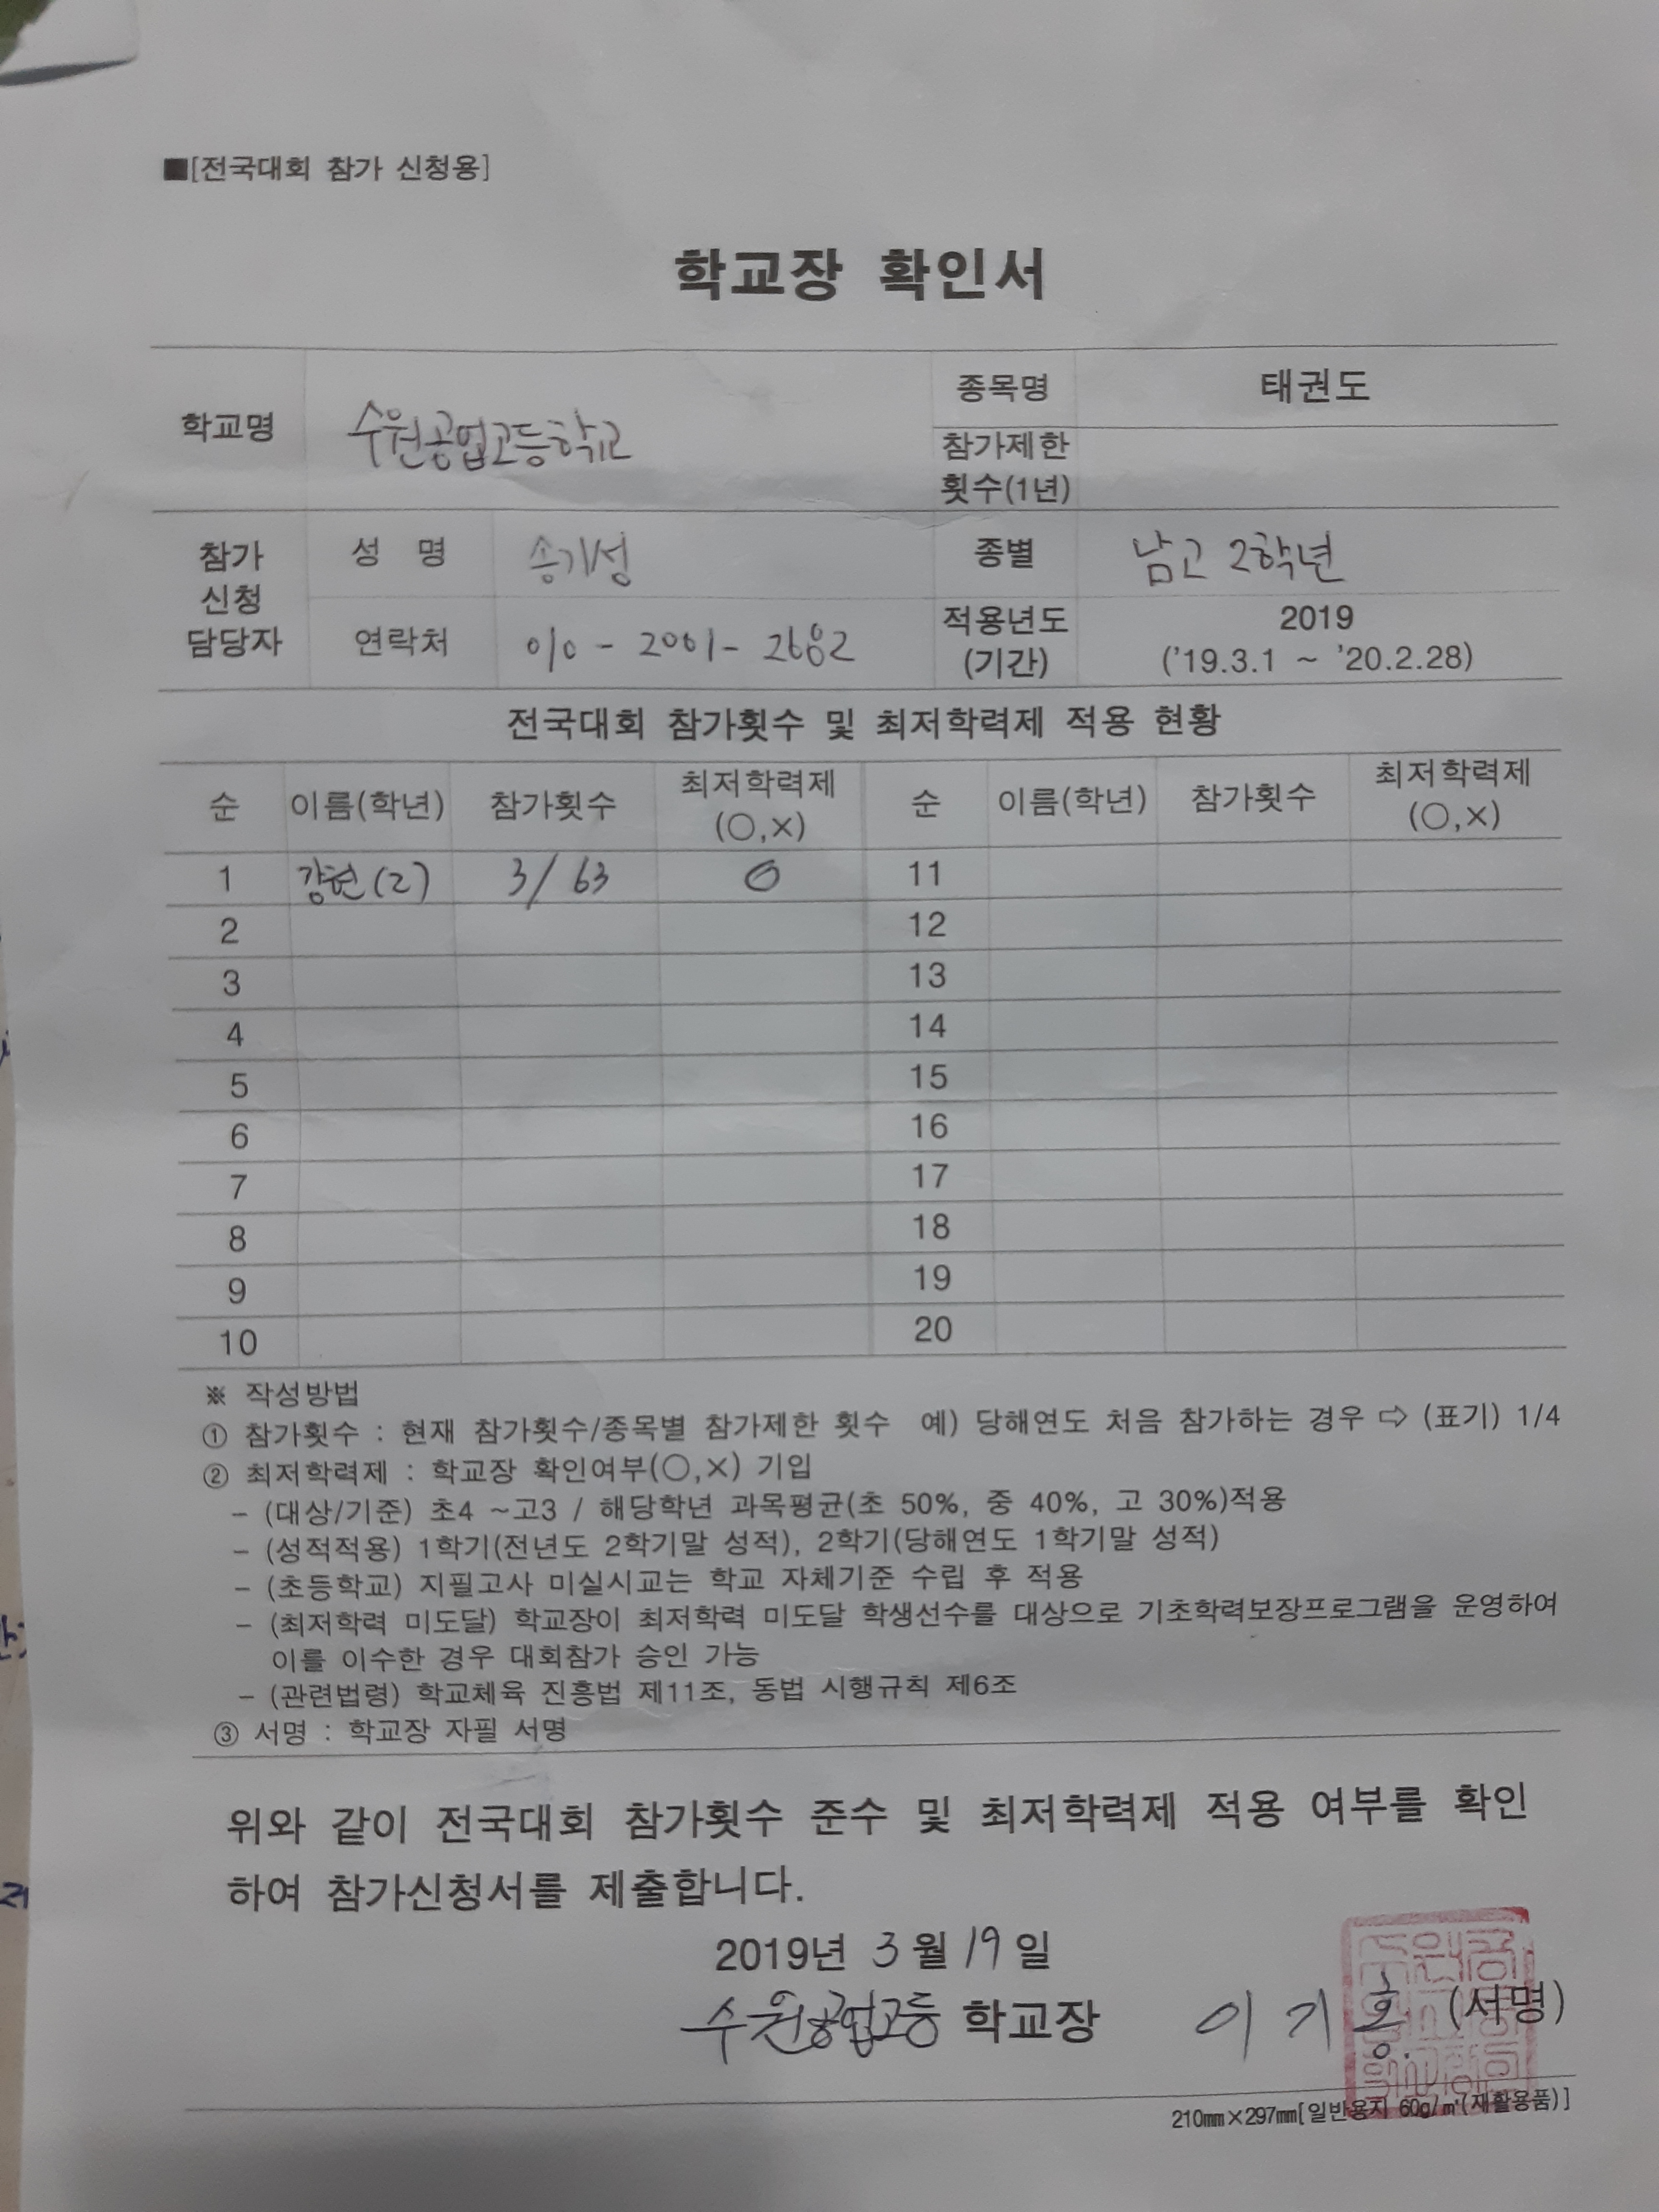 ■[전국대회 참가 신청용]
학교장 확인서
학교명 수원공업고등학교 종목명 태권도
참가제한
횟수(1년)
참가
신청
담당자
성 명 송기성 종별 남고 2학년
연락처 010-2001-2682 적용년도
(기간)
2019
('19.3.1 ~ '20.2.28)
전국대회 참가횟수 및 최저학력제 적용 현황
순 이름(학년) 참가횟수 최저학력제
(○,×)
순 이름(학년) 참가횟수 최저학력제
(○,×)
1 강현(2) 3/63 O 11
2 12
3 13
4 14
5 15
6 16
7 17
8 18
9 19
10 20
※ 작성방법
① 참가횟수 : 현재 참가횟수/종목별 참가제한 횟수 예) 당해연도 처음 참가하는 경우 ⇨ (표기) 1/4
② 최저학력제 : 학교장 확인여부(○,×) 기입
- (대상/기준) 초4 ~고3 / 해당학년 과목평균(초 50%, 중 40%, 고 30%)적용
- (성적적용) 1학기(전년도 2학기말 성적), 2학기(당해연도 1학기말 성적)
- (초등학교) 지필고사 미실시교는 학교 자체기준 수립 후 적용
- (최저학력 미도달) 학교장이 최저학력 미도달 학생선수를 대상으로 기초학력보장프로그램을 운영하여
이를 이수한 경우 대회참가 승인 가능
- (관련법령) 학교체육 진흥법 제11조, 동법 시행규칙 제6조
③ 서명 : 학교장 자필 서명
위와 같이 전국대회 참가횟수 준수 및 최저학력제 적용 여부를 확인
하여 참가신청서를 제출합니다.
2019년 3월 19일
수원공업고등 학교장 이기홍 (서명)
210㎜×297㎜[일반용지 60g/㎡(재활용품)]